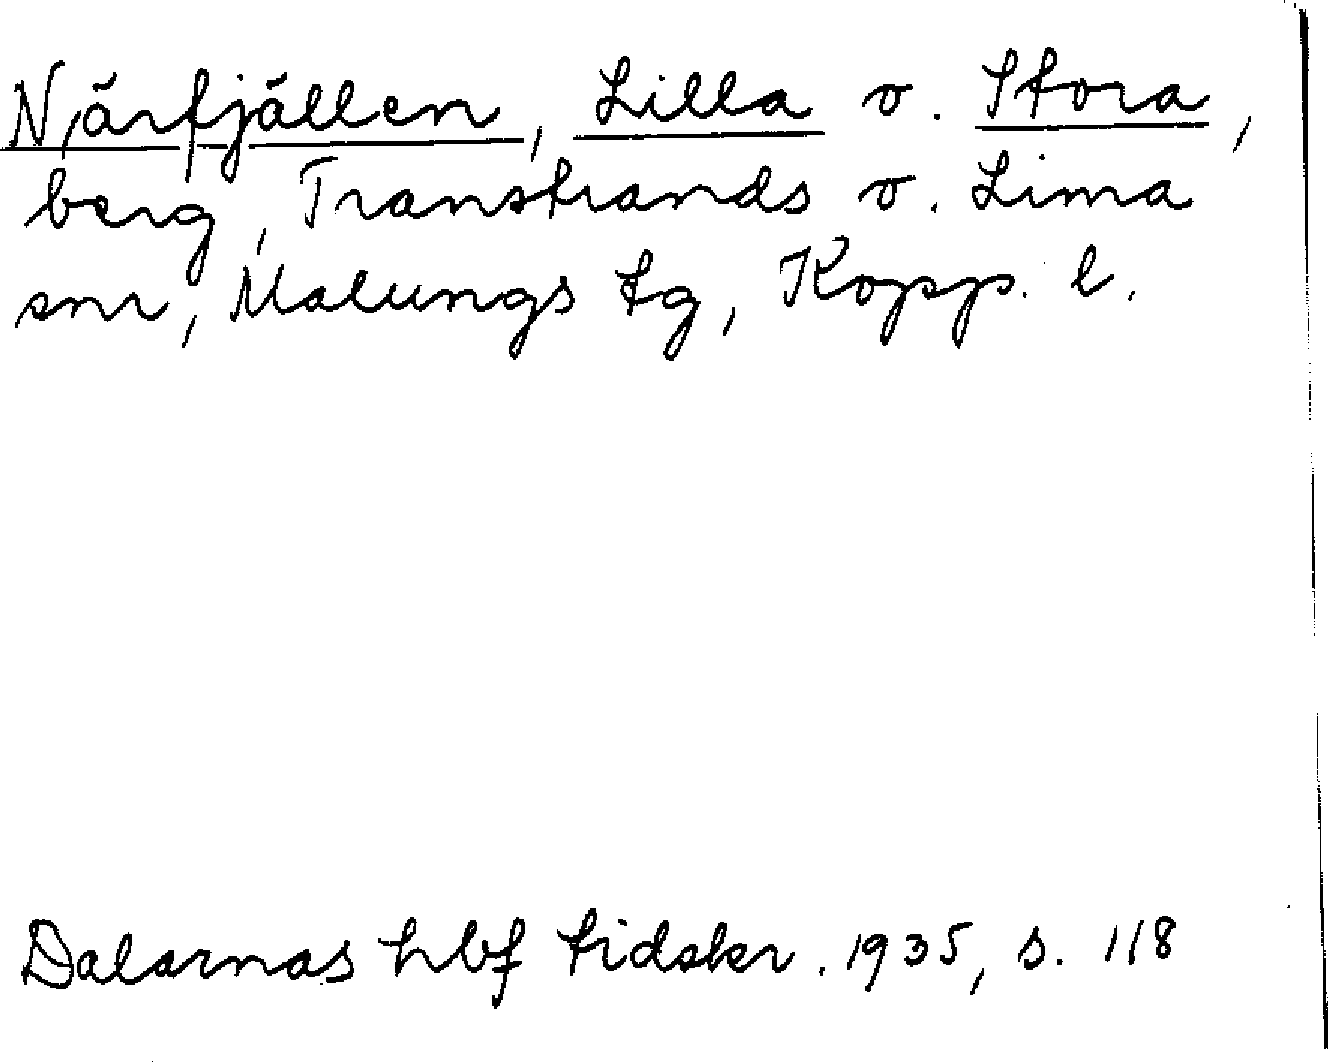 Närfjällen, Lilla o. Stora,
berg, Transtrands o. Lima
snr, Malungs tg, Kopp. l.
Dalarnas hbf tidskr. 1935, s. 118